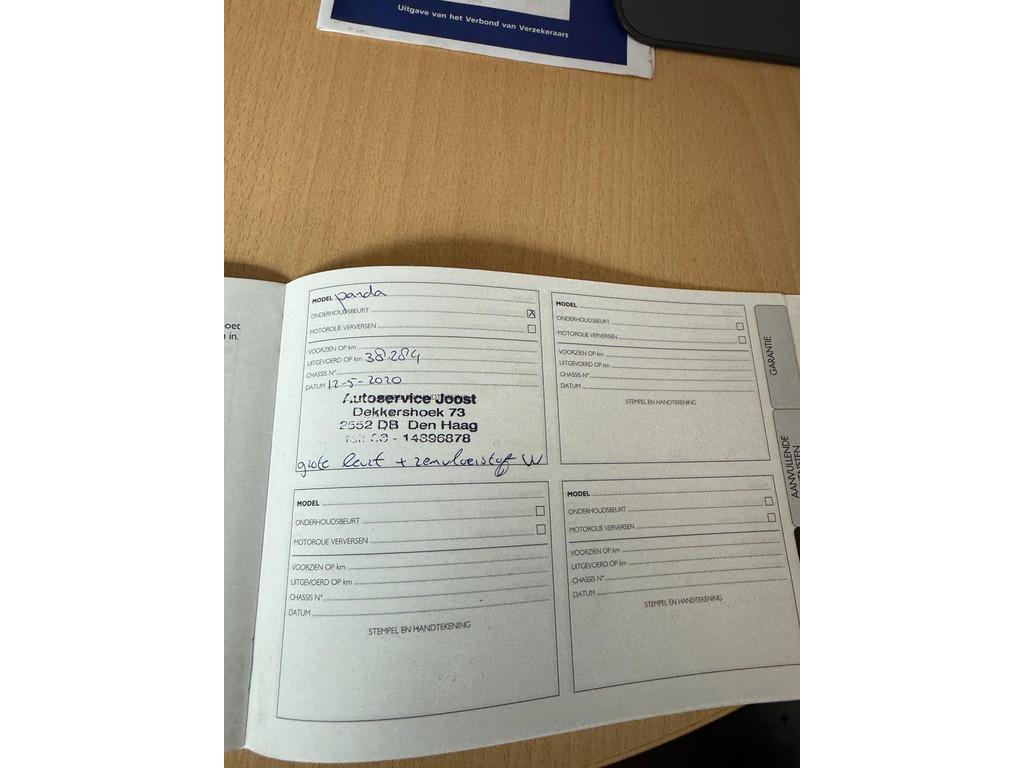 Uitgave van het Verbond van Verzekeraars
oet
in.
MODEL panda
ONDERHOUDSBEURT
MOTOROLIE VERVERSEN
VOORZIEN OP km
UITGEVOERD OP km 38.284
CHASSIS N°
DATUM 12-5-2020
Autoservice Joost
Dekkershoek 73
2552 DB Den Haag
14896878
grote beurt + remvloeistof W
MODEL
ONDERHOUDSBEURT
MOTOROLIE VERVERSEN
VOORZIEN OP km
UITGEVOERD OP km
CHASSIS N°
DATUM
STEMPEL EN HANDTEKENING
MODEL
ONDERHOUDSBEURT
MOTOROLIE VERVERSEN
VOORZIEN OP km
UITGEVOERD OP km
CHASSIS N°
DATUM
STEMPEL EN HANDTEKENING
MODEL
ONDERHOUDSBEURT
MOTOROLIE VERVERSEN
VOORZIEN OP km
UITGEVOERD OP km
CHASSIS N°
DATUM
STEMPEL EN HANDTEKENING
GARANTIE
AANVULLENDE